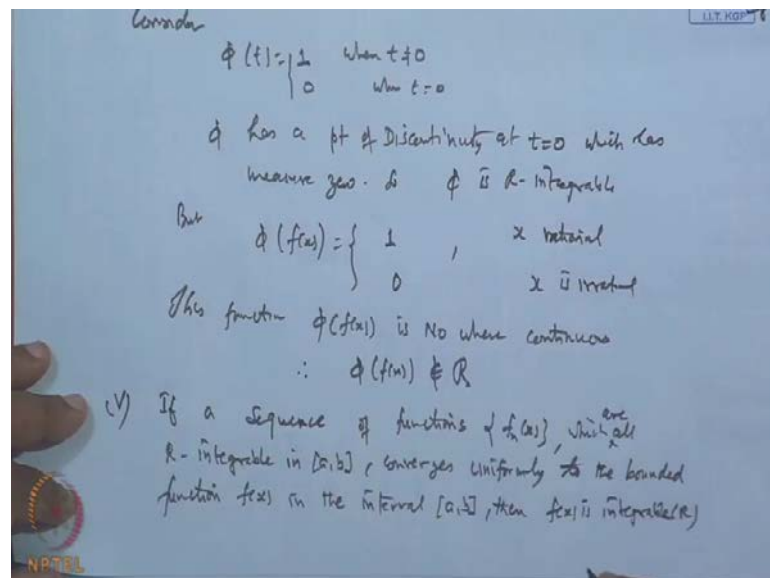 Consider
I.I.T. KGP
φ(t) = { 1 when t ≠ 0
0 when t = 0
φ has a pt of Discontinuity at t=0 which has
measure zero. So φ is R-integrable
But
φ(f(x)) = { 1 , x rational
0 x is irrational
This function φ(f(x)) is No where continuous
∴ φ(f(x)) ∉ R
(V) If a sequence of functions {fn(x)}, which are all
R-integrable in [a,b], converges uniformly to the bounded
function f(x) in the interval [a,b], then f(x) is integrable(R)
NPTEL